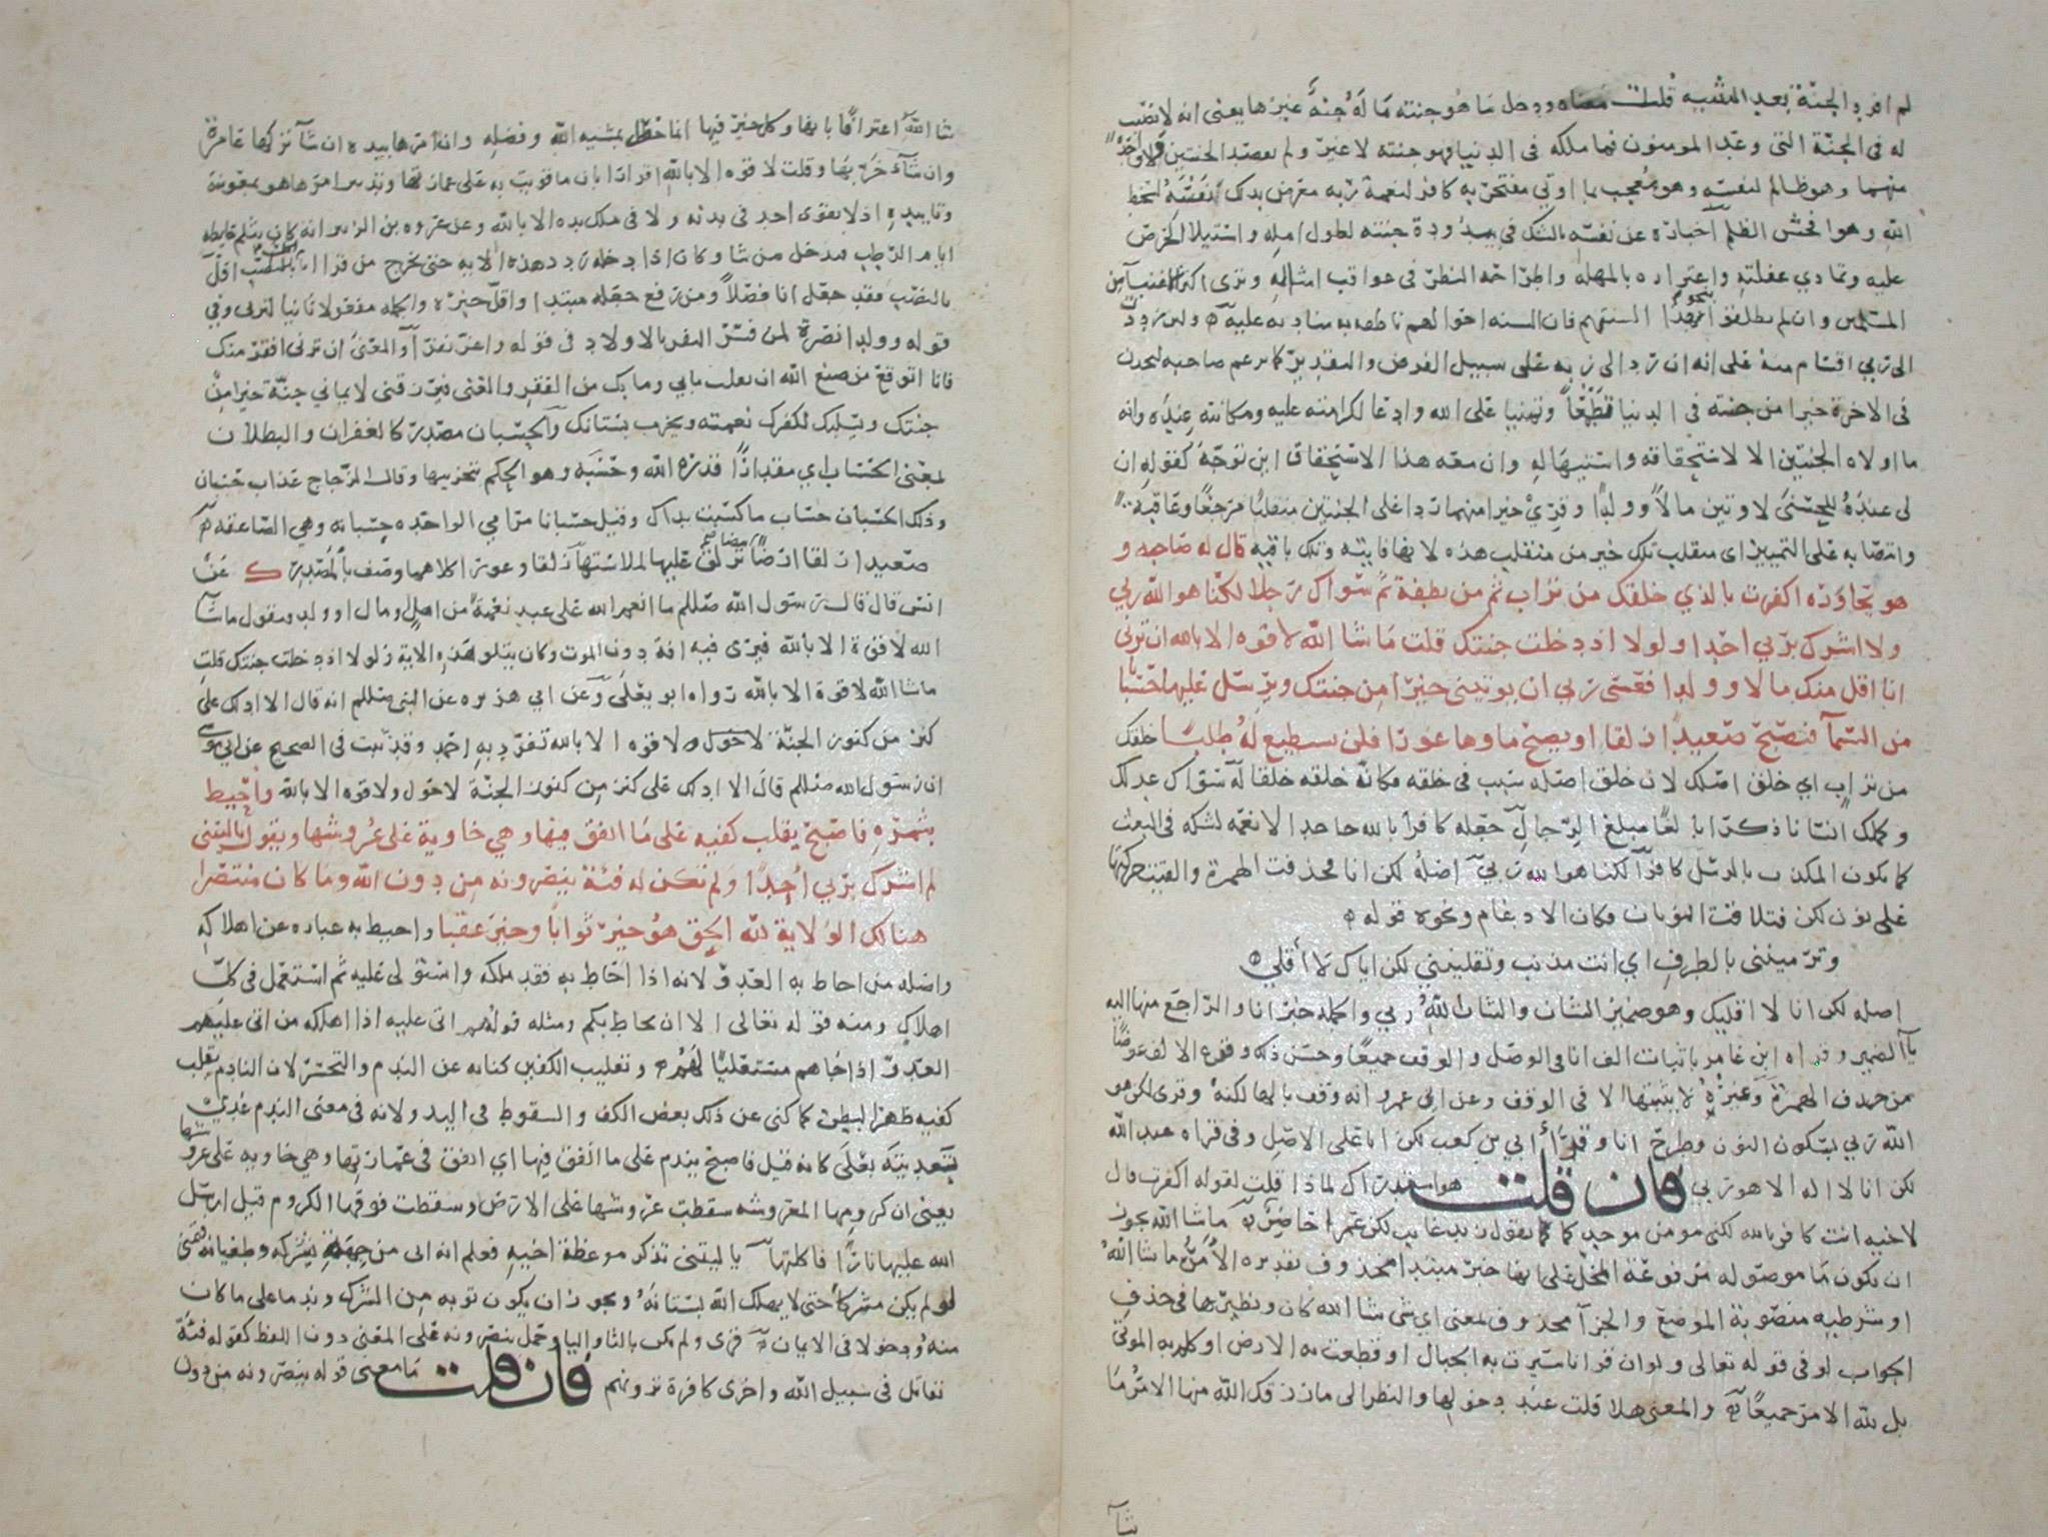 لم افرد الجنة بعد التثنيه قلت معناه ودخل ما هو جنته ما له جنة غيرها يعني انه لا نصيب
له في الجنة التي وعد المومنون فما ملكه في الدنيا فهو جنته لا غير ولم يقصد الجنتين ولا واحدة
منهما وهو ظالم لنفسه وهو معجب بما اوتي مفتخر به كافر لنعمة ربه معرض بذلك نفسه لسخط
الله وهو افحش الظلم اخباره عن نفسه بالشك في بيدودة جنته لطول امله واستيلا الحرص
عليه وتمادي غفلته واغتراره بالمهلة واطراحه النظر في عواقب امثاله وترى اكثر الاغنيآ من
المسلمين وان لم يطلقوا بنحو هذا السنتهم فان السنه احوالهم ناطقه به مناديه عليه ولين رددت
الى ربي اقسام منه على انه ان رد الى ربه على سبيل الفرض والتقدير كما يزعم صاحبه ليجدن
في الاخرة خيرا من جنته في الدنيا تطمعا وتمنيا على الله وادعا لكرامته عليه ومكانته عنده وانه
ما اولاه الجنتين الا لاستحقاقه واستيهاله وان معه هذا الاستحقاق اين توجه كقوله ان
لي عنده للحسنى لاوتين مالا وولدا وقري خيرا منهما ردا على الجنتين منقلبا مرجعا وعاقبة
وانتصابه على التمييز اي منقلب تلك خير من منقلب هذه لانها فانية وتلك باقيه قال له صاحبه و
هو يحاوره اكفرت بالذي خلقك من تراب ثم من نطفة ثم سواك رجلا لكنا هو الله ربي
ولا اشرك بربي احدا ولولا اذ دخلت جنتك قلت ما شا الله لا قوه الا بالله ان ترني
انا اقل منك مالا وولدا فعسى ربي ان يوتيني خيرا من جنتك ويرسل عليها حسبانا
من السمآ فتصبح صعيدا زلقا او يصبح ماوها غورا فلن تستطيع له طلبا خلقك
من تراب اي خلق اصلك لان خلق اصله سبب في خلقه فكانه خلقه خلقا له سواك عدلك
وكملك انسانا ذكرا بالغا مبلغ الرجال جعله كافرا بالله جاحدا لانعمه لشكه في البعث
كما يكون المكذب بالرسل كافرا لكنا هو الله ربي اصله لكن انا فحذفت الهمزة والقيت حركتها
على نون لكن فتلاقت النونان فكان الادغام ونحوه قوله
وترمينني بالطرف اي انت مذنب وتقلينني لكن اياك لا اقلي
اصله لكن انا لا اقليك وهو ضمير الشان والشان الله ربي والجمله خبر انا والراجع منها اليه
يآ الضمير وقراه ابن عامر باثبات الف انا في الوصل والوقف جميعا وحسن ذلك وقوع الالف عوضا
من حذف الهمزة وغيره لا يثبتها الا في الوقف وعن ابي عمرو انه وقف بالها لكنه وقرى لكن هو
الله ربي بسكون النون وطرح انا وقرأ أبي بن كعب لكن انا على الاصل وفي قراه عبد الله
لكن انا لا اله الا هو ربي فان قلت هو استدراك لماذا قلت لقوله اكفرت قال
لاخيه انت كافر بالله لكني مومن موحد كما تقول زيد غايب لكن عمرا حاضر ما شا الله يجوز
ان يكون ما موصوله مرفوعة المحل على انها خبر مبتدا محذوف تقديره الأمر ما شا الله
او شرطيه منصوبة الموضع والجزآ محذوف بمعنى اي شي شا الله كان ونظيرها في حذف
الجواب لو في قوله تعالى ولو ان قرانا سيرت به الجبال او قطعت به الارض او كلم به الموتى
بل لله الامر جميعا والمعنى هلا قلت عند دخولها والنظر الى ما رزقك الله منها الامر ما
شآ
شا الله اعترافا بانها وكل خير فيها انما حصل بمشيه الله وفضله وان امرها بيده ان شآ تركها عامرة
وان شآء خربها وقلت لا قوه الا بالله اقرارا بان ما قويت به على عمارتها وتدبير امرها هو بمعونته
وتاييده اذ لا يقوى احد في بدنه ولا في ملك يده الا بالله وعن عروه بن الزبير انه كان يثلم حايطه
ايام الرطب فيدخل من شا وكان اذا دخله ردد هذه الايه حتى يخرج من قرا اقل
بالنصب فقد جعل انا فصلا ومن رفع جعله مبتدا واقل خبره والجمله مفعولا ثانيا لترني وفي
قوله وولدا نصرة لمن فسر النفر بالاولاد في قوله واعز نفرا والمعنى ان ترني افقر منك
فانا اتوقع من صنع الله ان يقلب مابي وما بك من الفقر والغنى فيرزقني لايماني جنة خيرا من
جنتك ويسلبك لكفرك نعمته ويخرب بستانك والحسبان مصدر كالغفران والبطلان
بمعنى الحساب اي مقدارا قدره الله وحسبه وهو الحكم بتخريبها وقال الزجاج عذاب حسبان
وذلك الحسبان حساب ما كسبت يداك وقيل حسبانا مرامي الواحده حسبانه وهي الصاعقه
صعيدا زلقا ارضا بيضا يزلق عليها لملاستها زلقا وغورا كلاهما وصف بالمصدر ك عن
انس قال قال رسول الله صللم ما انعم الله على عبد نعمة من اهل ومال او ولد فيقول ما شآ
الله لا قوة الا بالله فيرى فيه افة دون الموت وكان يتلو هذه الاية ولولا اذ دخلت جنتك قلت
ما شا الله لا قوة الا بالله رواه ابو يعلى وعن ابي هريره عن النبي صللم انه قال الا ادلك على
كنز من كنوز الجنة لا حول ولا قوه الا بالله تفرد به احمد وقد ثبت في الصحيح عن ابي موسى
ان رسول الله صللم قال الا ادلك على كنز من كنوز الجنة لا حول ولا قوه الا بالله واحيط
بثمره فاصبح يقلب كفيه على ما انفق فيها وهي خاوية على عروشها ويقول ياليتني
لم اشرك بربي أحدا ولم تكن له فئة ينصرونه من دون الله وما كان منتصرا
هنالك الولاية لله الحق هو خير ثوابا وخير عقبا واحيط به عباره عن اهلاكه
واصله من احاط به العدو لانه اذا احاط به فقد ملكه واستولى عليه ثم استعمل في كل
اهلاك ومنه قوله تعالى الا ان يحاط بكم ومثله قولهم اتى عليه اذا اهلكه من اتى عليهم
العدو اذا جاهم مستعليا لهم وتقليب الكفين كنايه عن الندم والتحسر لان النادم يقلب
كفيه ظهرا لبطن كما كنى عن ذلك بعض الكف والسقوط في اليد ولانه في معنى الندم عدي
بتعديته بعلى كانه قيل فاصبح يندم على ما انفق فيها اي انفق في عمارتها وهي خاويه على عروشها
يعني ان كرومها المعروشه سقطت عروشها على الارض وسقطت فوقها الكروم قيل ارسل
الله عليها نارا فاكلتها يا ليتني تذكر موعظة اخيه فعلم انه اتى من جهة شركه وطغيانه فتمنى
لو لم يكن مشركا حتى لا يهلك الله بستانه ويجوز ان يكون توبه من الشرك وندما على ما كان
منه ودخولا في الايمان قرى ولم يكن بالتا واليا وحمل ينصرونه على المعنى دون اللفظ كقوله فئة
تقاتل في سبيل الله واخرى كافرة ترونهم فان قلت ما معنى قوله ينصرونه من دون